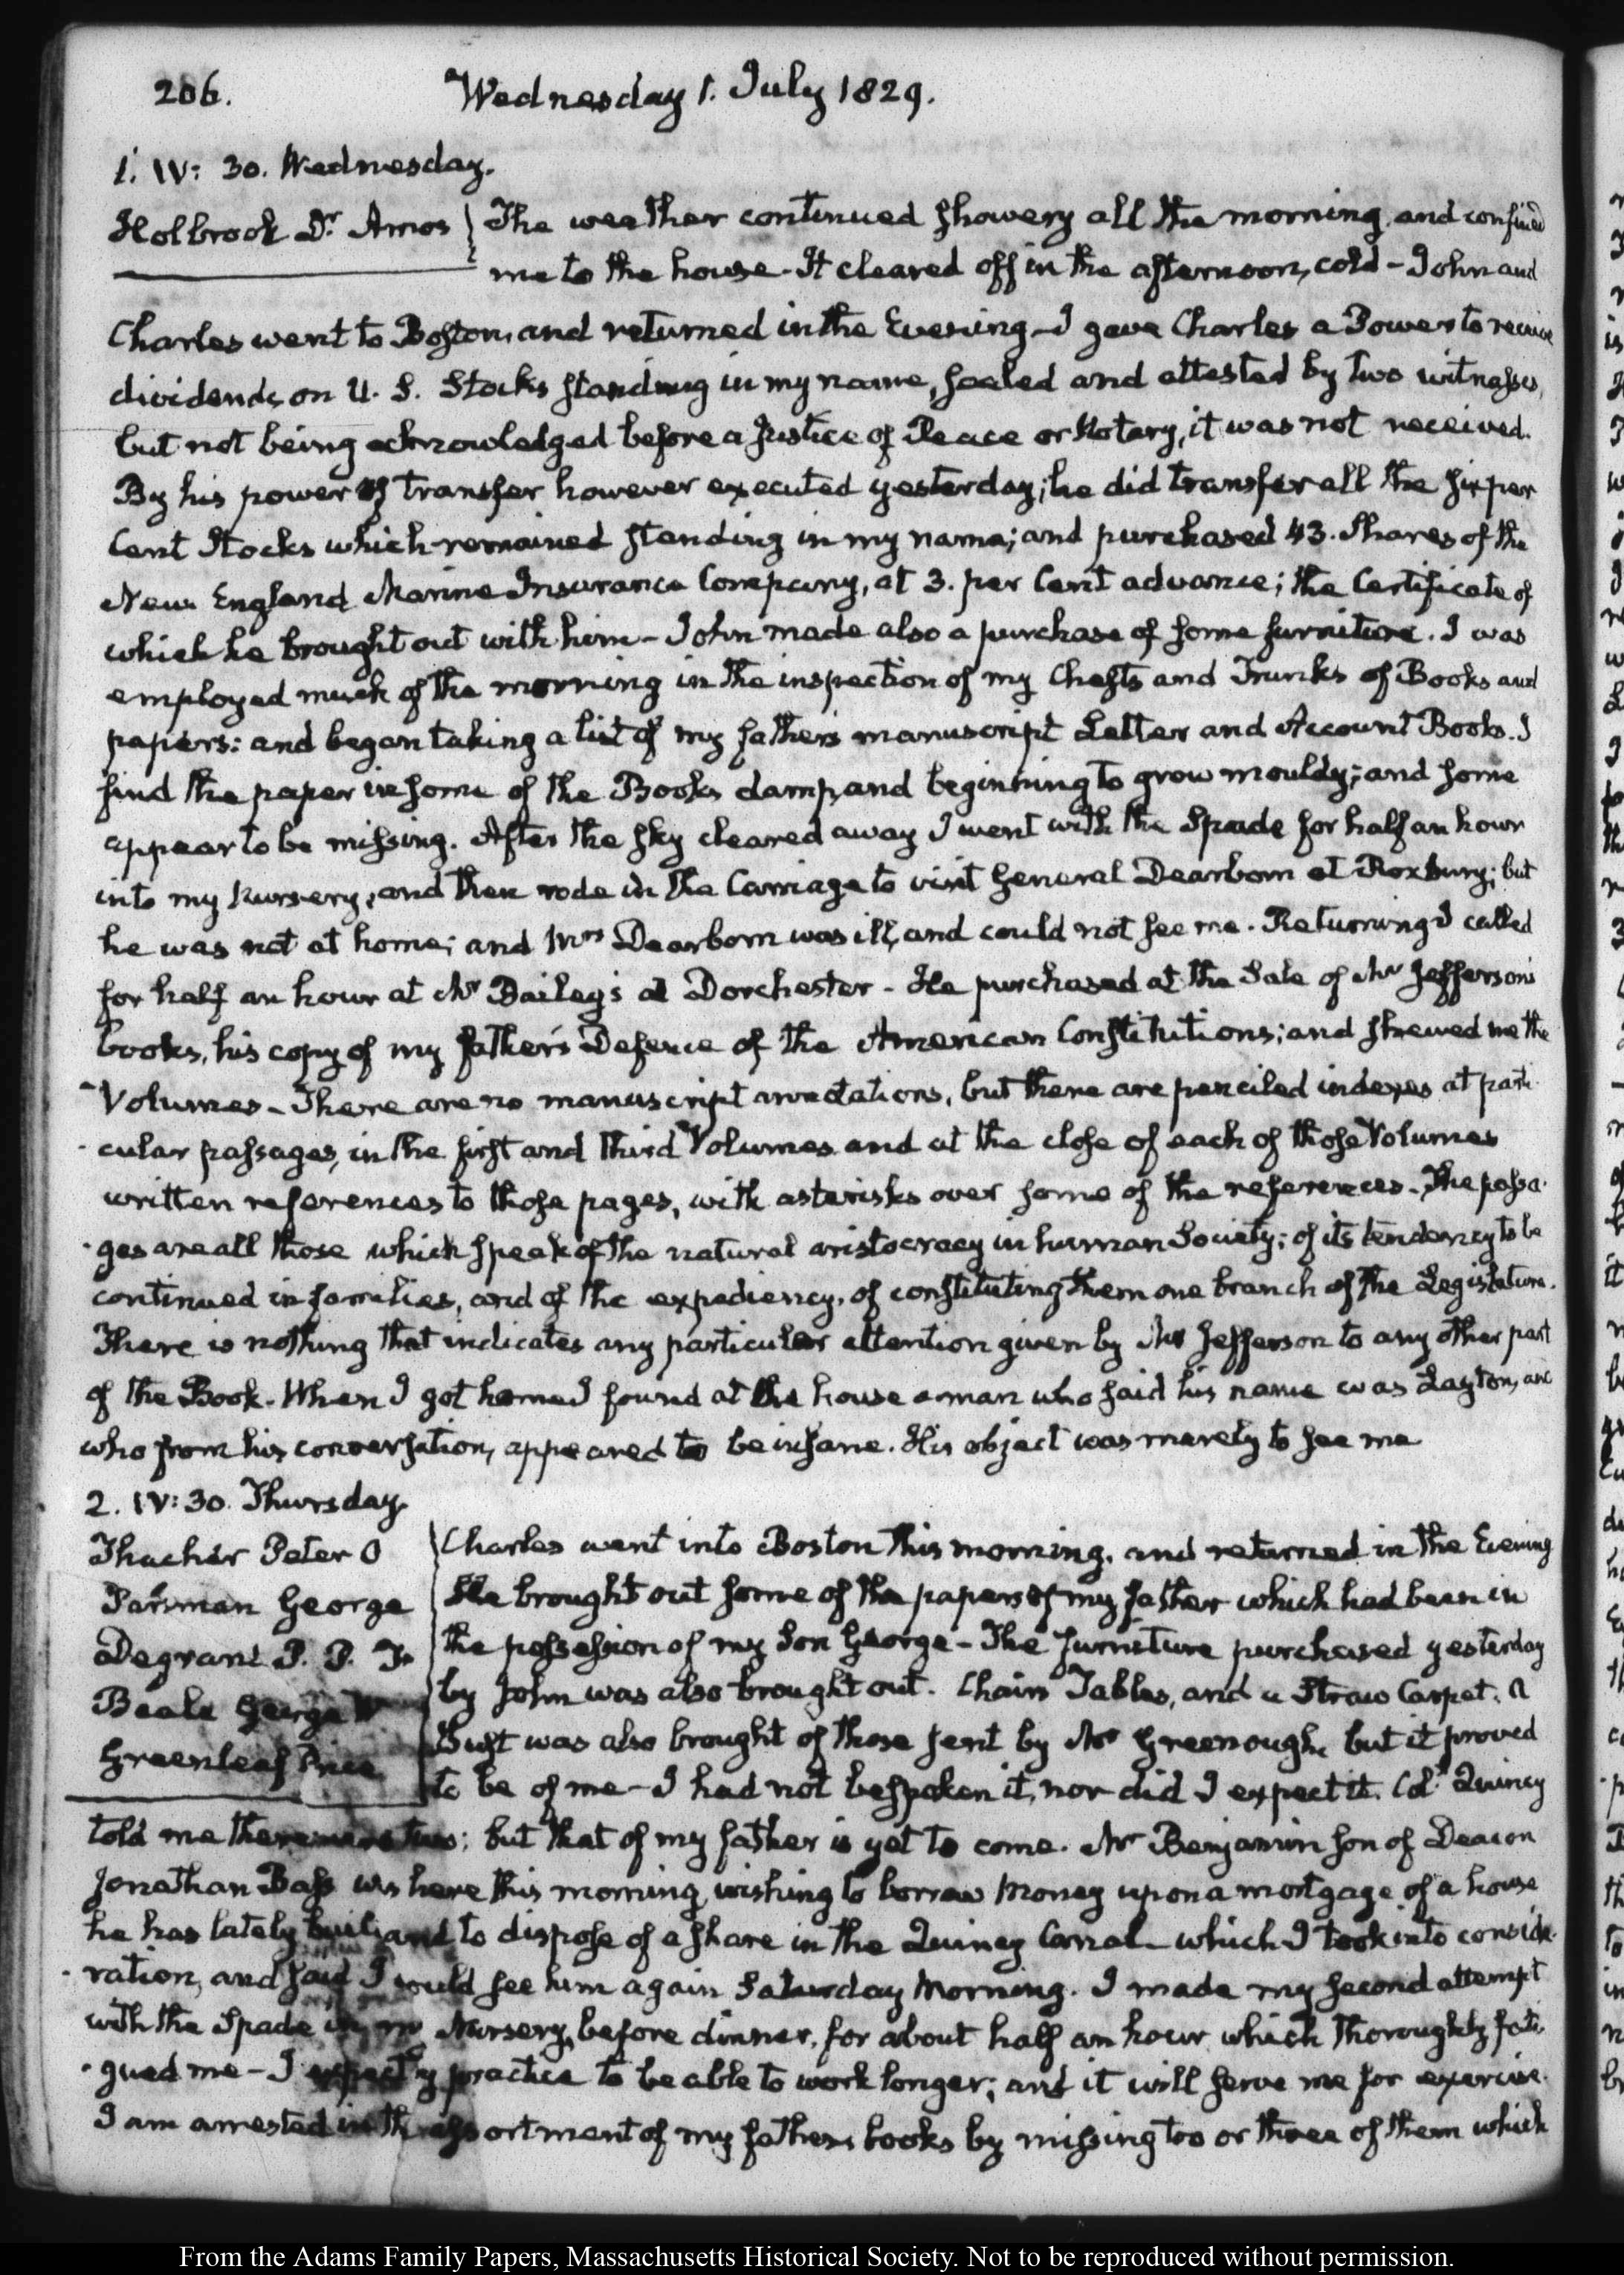 206.
Wednesday 1. July 1829.
1. IV: 30. Wednesday.
Holbrook Dr. Amos
The weather continued showery all the morning, and confined
me to the house - It cleared off in the afternoon, cold - John and
Charles went to Boston, and returned in the Evening - I gave Charles a Power to receive
dividends on U. S. Stocks standing in my name, sealed and attested by two witnesses,
but not being acknowledged before a Justice of Peace or Notary, it was not received.
By his power of transfer however executed yesterday; he did transfer all the six per
Cent Stocks which remained standing in my name; and purchased 43. Shares of the
New England Marine Insurance Company, at 3. per Cent advance; the Certificate of
which he brought out with him - John made also a purchase of some furniture. I was
employed much of the morning in the inspection of my Chests and Trunks of Books and
papers: and began taking a list of my father's manuscript Letter and Account Books. I
find the paper in some of the Books damp, and beginning to grow mouldy; and some
appear to be missing. After the sky cleared away I went with the Spade for half an hour
into my Nursery, and then rode in the Carriage to visit General Dearborn at Roxbury; but
he was not at home; and Mrs Dearborn was ill, and could not see me. Returning I called
for half an hour at Mr Bailey's at Dorchester - He purchased at the Sale of Mr Jefferson's
books, his copy of my father's Defence of the American Constitutions; and shewed me the
Volumes - There are no manuscript annotations, but there are penciled indexes at parti-
-cular passages, in the first and third Volumes and at the close of each of those Volumes
written references to those pages, with asterisks over some of the references. The passa-
-ges are all those which speak of the natural aristocracy in human Society; of its tendency to be
continued in families, and of the expediency, of constituting them one branch of the Legislature.
There is nothing that indicates any particular attention given by Mr Jefferson to any other part
of the Book. When I got home I found at the house a man who said his name was Layton, and
who from his conversation, appeared to be insane. His object was merely to see me
2. IV: 30. Thursday.
Thacher Peter O
Parkman George
Degrand P. P. F.
Beale George W
Greenleaf Price
Charles went into Boston this morning, and returned in the Evening
He brought out some of the papers of my father which had been in
the possession of my Son George - The furniture purchased yesterday
by John was also brought out. Chairs Tables, and a Straw Carpet. A
Bust was also brought of those sent by Mr Greenough, but it proved
to be of me - I had not bespoken it, nor did I expect it. Coll. Quincy
told me there were two; but that of my father is yet to come. Mr Benjamin son of Deacon
Jonathan Bass was here this morning, wishing to borrow Money upon a mortgage of a house
he has lately built, and to dispose of a share in the Quincy Canal - which I took into conside-
-ration, and said I would see him again Saturday Morning. I made my second attempt
with the Spade in my Nursery, before dinner, for about half an hour which thoroughly fati-
-gued me - I expect by practice to be able to work longer; and it will serve me for exercise.
I am arrested in the assortment of my father's books by missing two or three of them which
From the Adams Family Papers, Massachusetts Historical Society. Not to be reproduced without permission.